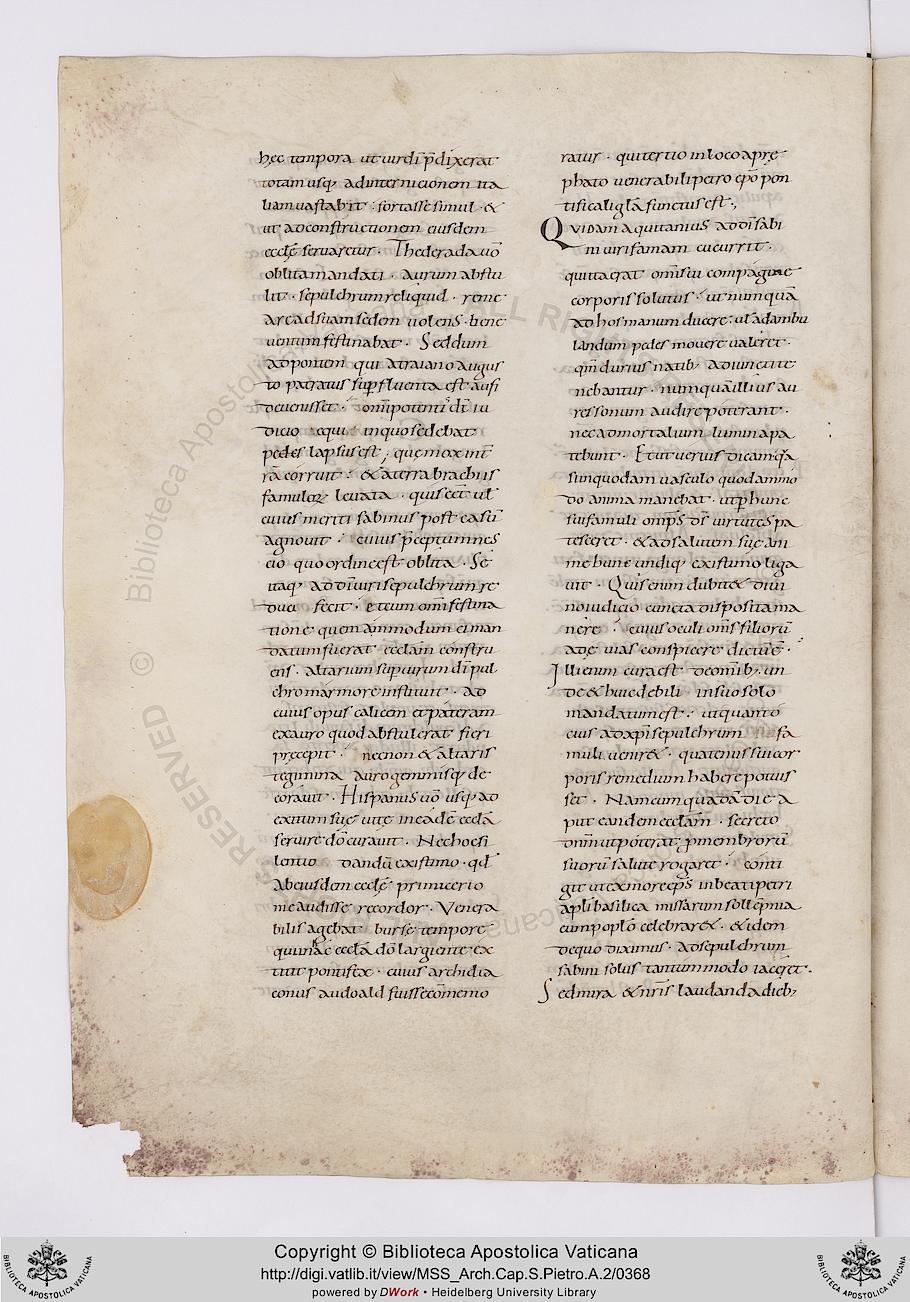 hęc tempora ut uir dī p̄dixerat
totam usq; ad internicionem ita
liam uastabit : fortasse simul · &
ut ad constructionem eiusdem
ecclę seruaretur · Thederada uō
oblita mandati · aurum abstu
lit · sepulchrum reliquid · reme
are ad suam sedem uolens · bene
uentum festinabat · Sed dum
ad pontem qui a traiano augus
to patratus sup̄ fluenta est aufi
deuenisset · omīpotentī dī iu
dicio equi in quo sedebat
pedes lapsus est ; que mox in t̄
rā corruit : & a terra brachiis
famulor̨ leuata · quis eēt ul̄
cuius meriti sabinus post casū
agnouit : cuius p̄ceptum nes
cio quo ordine est oblita · Se
itaq; ad diuiri sepulchrum re
duci fecit · et cum omī festina
tione quemammodum ei man
datum fuerat ecclam constru
ens · altarium supuirum dī pul
chro marmore instituit · ad
cuius opus calicem et pateram
ex auro quod abstulerat fieri
pręcepit · nec non & altaris
tegimina auro gemmisq; de
corauit · Hispanus uō usq; ad
exitum suę uitę in eadē ecclā
seruire dō curauit · Nec hoc si
lentio dandū existimo · qd̄
ab eiusdem ecclę primicerio
me audisse recordor · Venera
bilis agebat burse tempore
qui in hac ecclā dō largiente ex
titit pontifex · cuius archidia
conus audoald fuisse cōmemo
ratur · qui tertio in loco a prę
phato uenerabili petro ep̄o pon
tificali gl̄a functus est ;
Quidam aquitanius ad dī sabi
ni uiri famam cucurrit ·
qui ita erat omī sui compagine
corporis solutus · ut numquā
ad hos manum ducere : ul̄ ad ambu
landum pedes mouere ualeret ·
qm̄ durius natib; adiuncti te
nebantur · numquā illius au
res sonum audire poterant ·
nec ad mortalium lumina pa
tebunt · Et ut uerius dicam q̄a
sunquodam uasculo quodammo
do anima manebat · ut p̄ hunc
sui famuli omp̄s dī uirtutes pa
tesceret · & ad salutem suę ani
mę hunc undiq; existimo liga
uit · Quis enim dubitet diui
no iudicio cuncta disposita ma
nere : cuius oculi omīs filiorū
adę uias conspicere dictū ē :
Illi enim cura est de omīb; un
de & huic debili in suo solo
mandatum est : ut quanto
cius ad xpī sepulchrum sui fa
muli uenir& · quatenus sui cor
poris remedium habere potuis
set · Nam cum quadā die a
put eandem ecclam · secreto
dnm̄ ut poterat p̄ membrorū
suorū salute rogaret · conti
git ut ex more ep̄s in beati petri
apl̄i basilica missarum sollępnia
cum poplo celebrar& · & idem
de quo diximus · ad sepulchrum
sabini solus tantummodo iaceret ·
Sed mira & nr̄is laudanda dieb;
Copyright © Biblioteca Apostolica Vaticana
http://digi.vatlib.it/view/MSS_Arch.Cap.S.Pietro.A.2/0368
powered by DWork • Heidelberg University Library